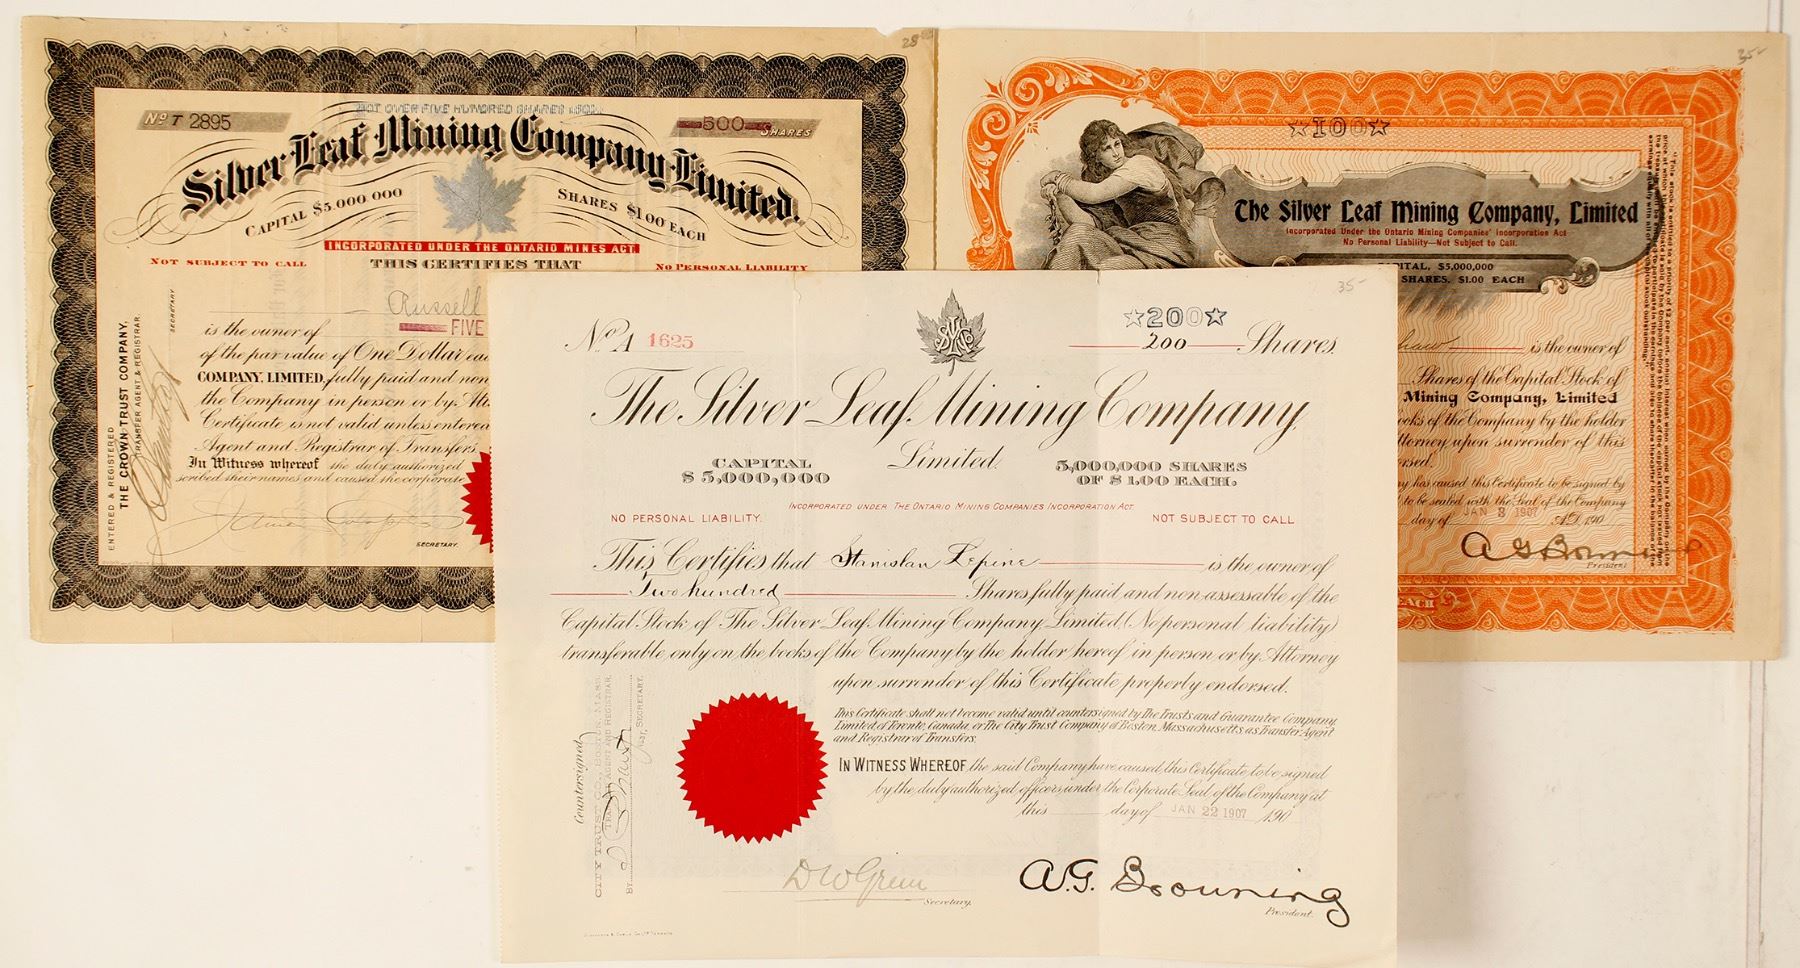 28
No T 2895
NOT OVER FIVE HUNDRED SHARES
500 SHARES
Silver Leaf Mining Company Limited.
CAPITAL $5.000 000
SHARES $1.00 EACH
INCORPORATED UNDER THE ONTARIO MINES ACT.
NOT SUBJECT TO CALL
THIS CERTIFIES THAT
NO PERSONAL LIABILITY
Russell
is the owner of FIVE
of the par value of One Dollar
COMPANY, LIMITED, fully paid and non
the Company in person or by
Certificate is not valid unless
Agent and Registrar of Transfers.
In Witness whereof the duly authorized
scribed their names and caused the corporate
SECRETARY.
ENTERED & REGISTERED
THE CROWN TRUST COMPANY,
TRANSFER AGENT & REGISTRAR.
SECRETARY
35
☆100☆
The Silver Leaf Mining Company, Limited
Incorporated Under the Ontario Mining Companies' Incorporation Act
No Personal Liability—Not Subject to Call.
CAPITAL, $5,000,000
SHARES, $1.00 EACH
is the owner of
Shares of the Capital Stock of
Mining Company, Limited
books of the Company by the holder
Attorney upon surrender of this
has caused this Certificate to be signed by
to be sealed with the Seal of the Company
day of JAN 3 1907 A.D. 190
President
EACH
35-
No A 1625
SVLMCO
☆200☆
200 Shares.
The Silver Leaf Mining Company
Limited.
CAPITAL
$5,000,000
5,000,000 SHARES
OF $1.00 EACH.
INCORPORATED UNDER THE ONTARIO MINING COMPANIES INCORPORATION ACT.
NO PERSONAL LIABILITY.
NOT SUBJECT TO CALL
This Certifies that Stanislan Lepine is the owner of
Two hundred Shares fully paid and non assessable of the
Capital Stock of The Silver Leaf Mining Company Limited (No personal liability)
transferable only on the books of the Company by the holder hereof in person or by Attorney
upon surrender of this Certificate properly endorsed.
This Certificate shall not become valid until countersigned by The Trusts and Guarantee Company,
Limited, of Toronto, Canada, or The City Trust Company of Boston, Massachusetts, as Transfer Agent
and Registrar of Transfers.
IN WITNESS WHEREOF the said Company have caused this Certificate to be signed
by the duly authorized officers under the Corporate Seal of the Company at
this day of JAN 22 1907 190
Countersigned
CITY TRUST CO., BOSTON, MASS.
TRANSFER AGENT AND REGISTRAR.
BY
SECRETARY.
D W Green
Secretary.
A.G. Browning
President.